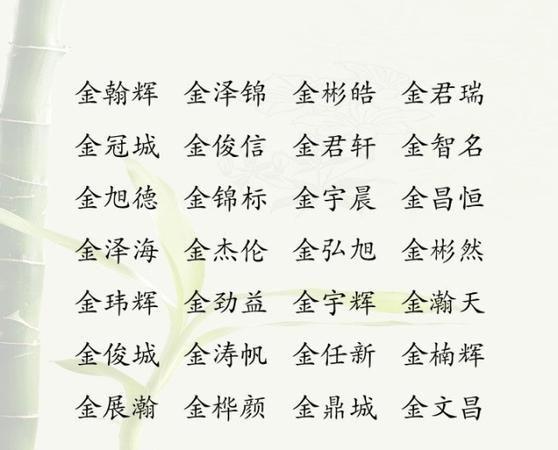 金翰辉 金泽锦 金彬皓 金君瑞
金冠城 金俊信 金君轩 金智名
金旭德 金锦标 金宇晨 金昌恒
金泽海 金杰伦 金弘旭 金彬然
金玮辉 金劲益 金宇辉 金瀚天
金俊城 金涛帆 金任新 金楠辉
金展瀚 金桦颜 金鼎城 金文昌